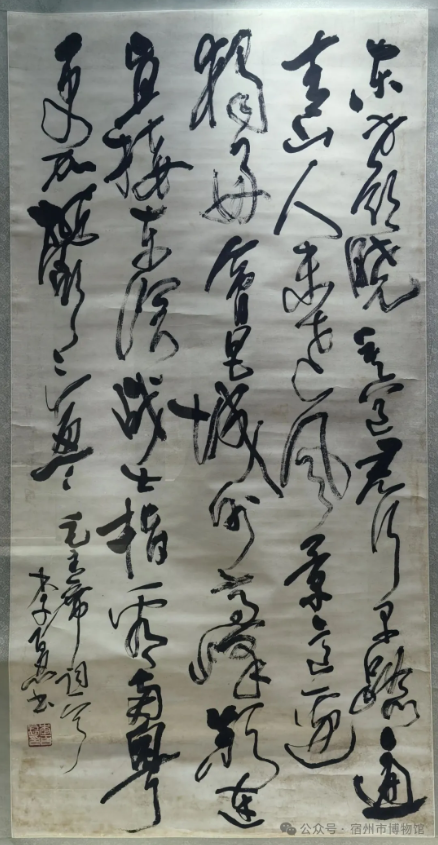 东方欲晓莫道君行早踏遍
青山人未老风景这边
独好会昌城外高峰颠连
直接东溟战士指看南粤
更加郁々葱々
毛主席词一首
李百忍书
公众号·宿州市博物馆